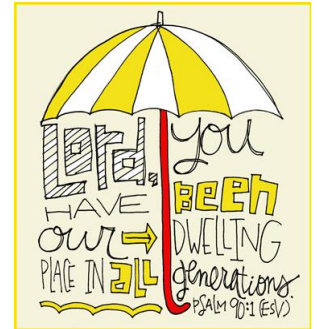 Lord, you
HAVE BEEN
our DWELLING
PLACE IN ALL generations.
PSALM 90:1 (ESV)